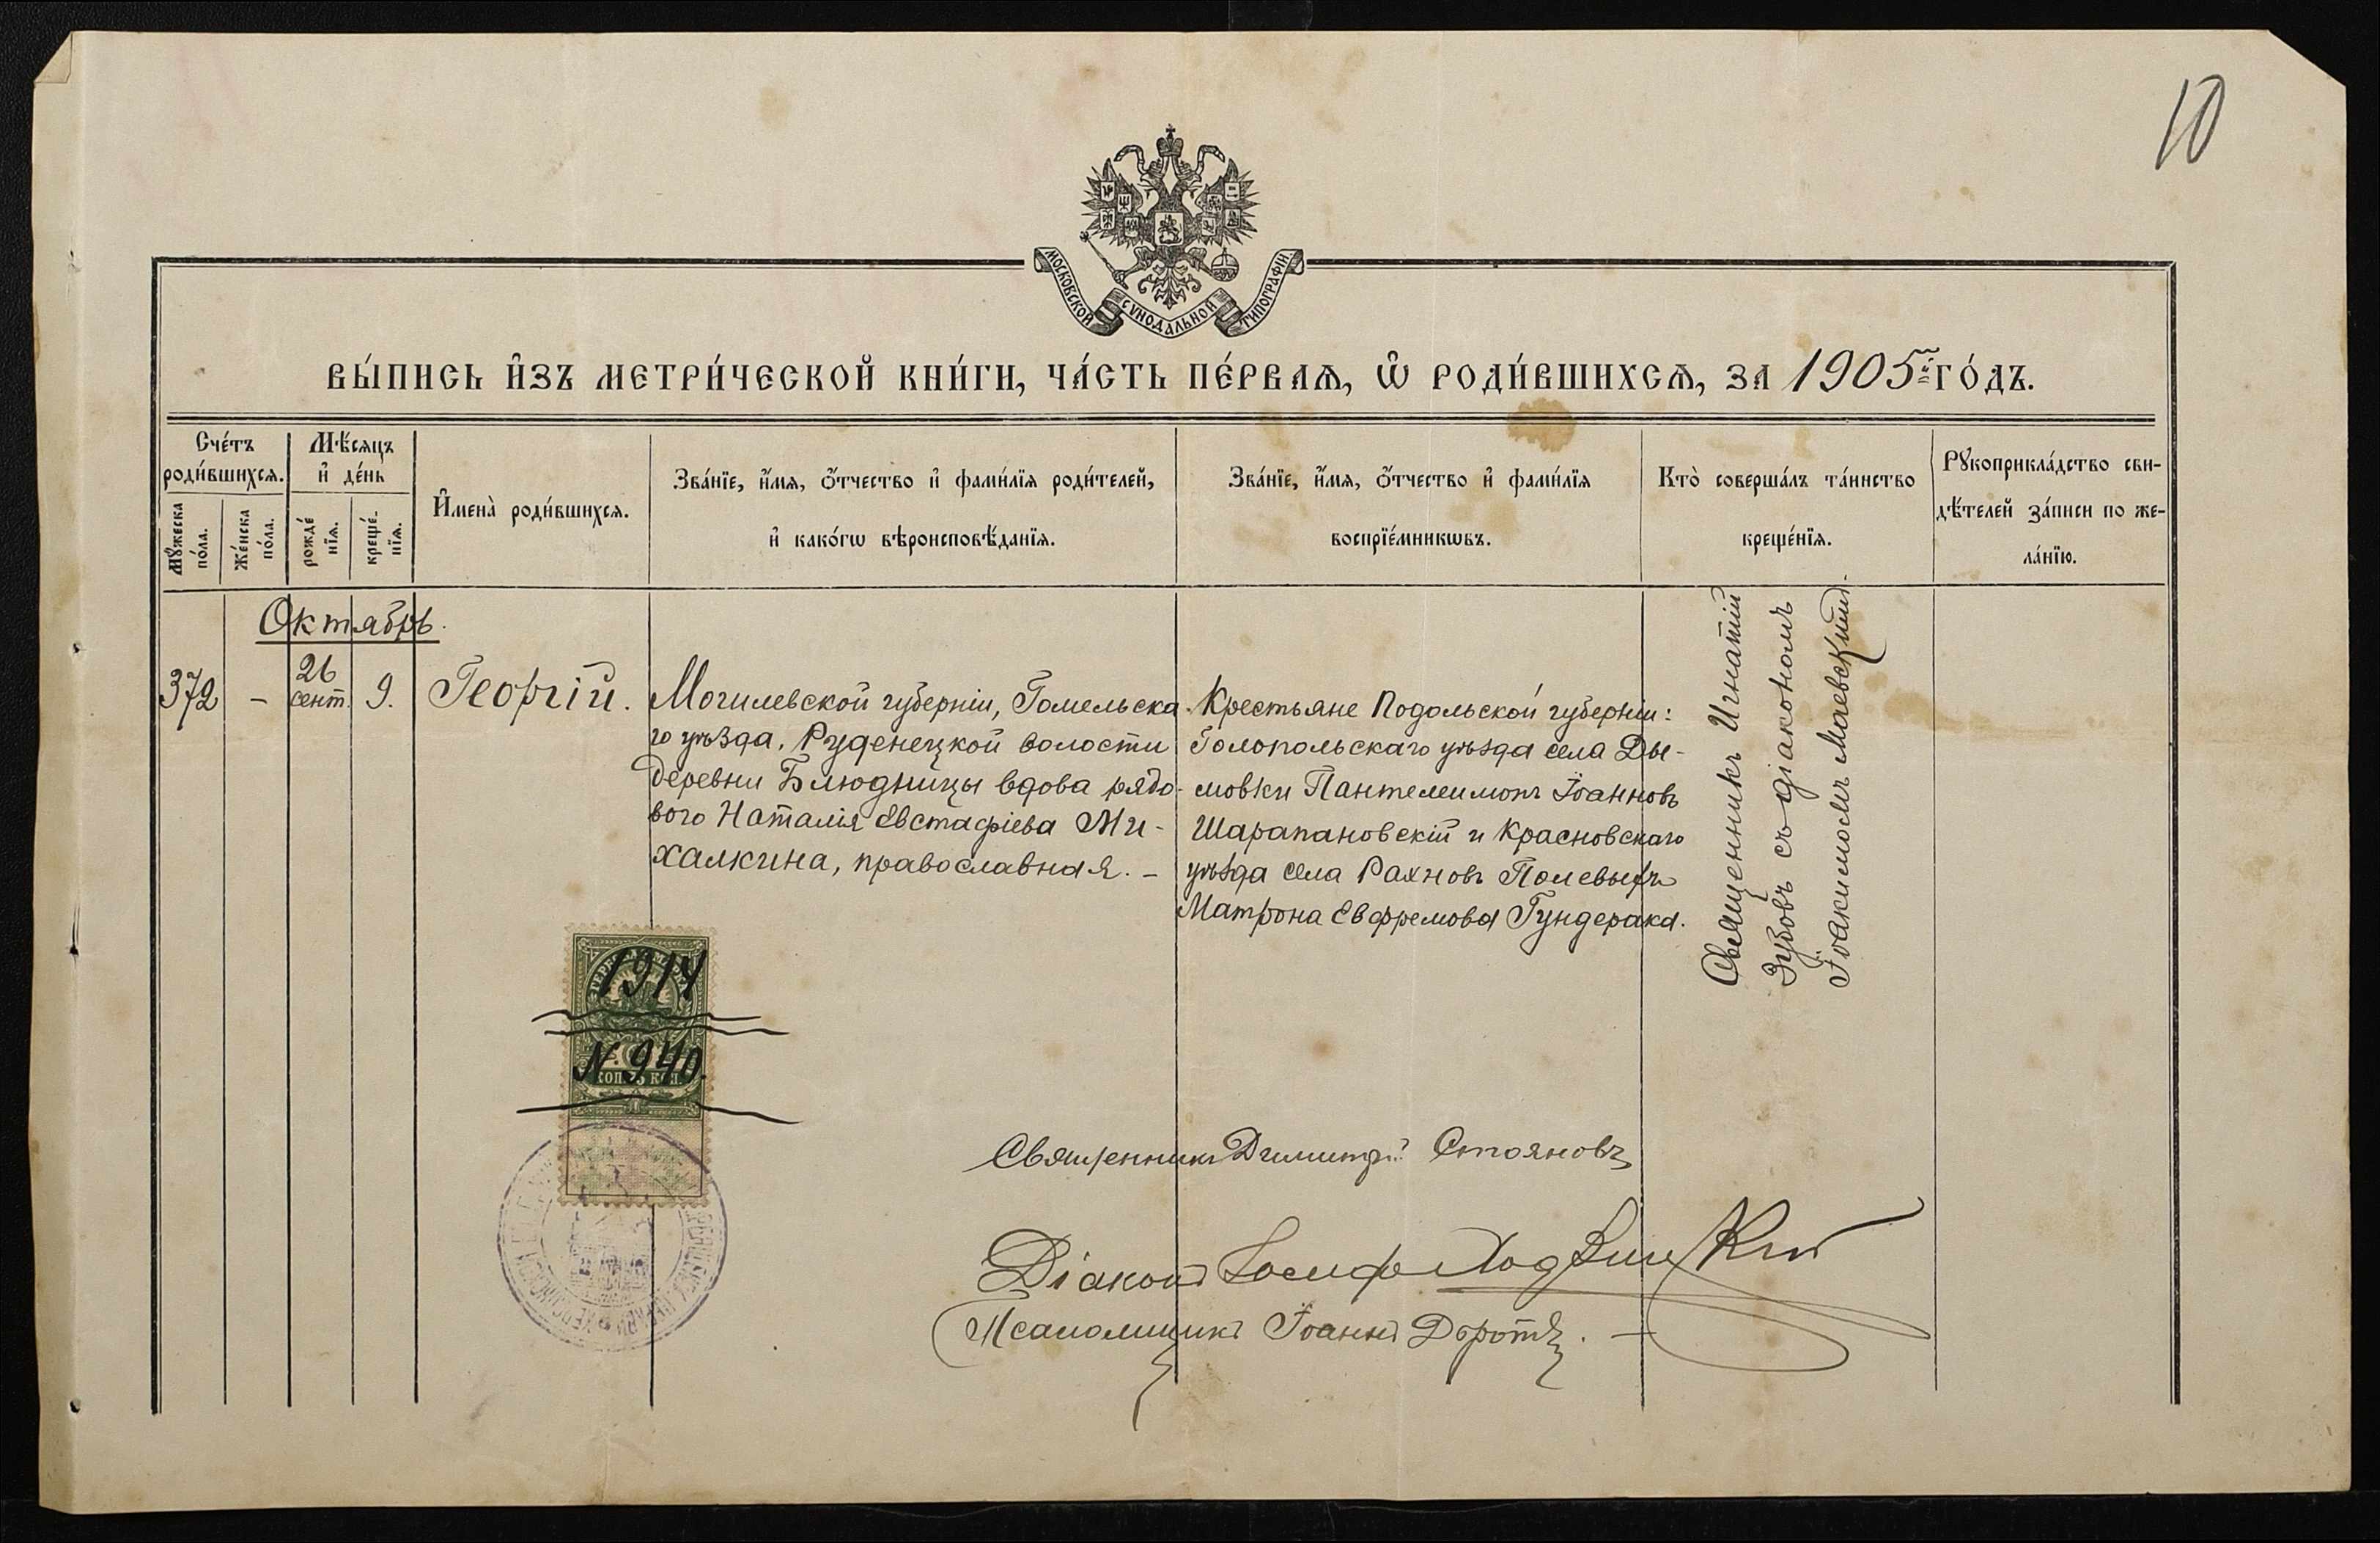 10
МОСКОВСКОЙ СѴНОДАЛЬНОЙ ТИПОГРАФІИ
ВЫ́ПИСЬ И҆ЗЪ МЕТРИ́ЧЕСКОЙ КНИ́ГИ, ЧА́СТЬ ПЕ́РВАѦ, Ѽ РОДИ́ВШИХСѦ, ЗА 1905й ГО́ДЪ.
Сче́тъ роди́вшихсѧ.
Мꙋ́жеска по́ла.
Же́нска по́ла.
Мѣ́сѧцъ и҆ де́нь
рожде́нїѧ.
креще́нїѧ.
И҆мена̀ роди́вшихсѧ.
Зва́нїе, и҆́мѧ, ѻ҆́тчество и҆ фами́лїѧ роди́телей,
и҆ како́гѡ вѣроисповѣ́данїѧ.
Зва́нїе, и҆́мѧ, ѻ҆́тчество и҆ фами́лїѧ
воспрїе́мникѡвъ.
Кто̀ соверша́лъ та́инство
креще́нїѧ.
Рꙋкоприкла́дство сви-
дѣ́телей за́писи по же-
ла́нїю.
Октябрь.
372
-
26
сент.
9.
Георгій.
Могилевской губерніи, Гомельска-
го уѣзда, Руденецкой волости
деревни Блюдницы вдова рядо-
вого Наталія Евстафіева Ми-
халкина, православная. -
Крестьяне Подольской губерніи:
Гопопольскаго уѣзда села Ды-
мовки Пантелеимонъ Іоанновъ
Шарапановскій и Красновскаго
уѣзда села Рахновъ Полевыхъ
Матрона Евфремова Гундерака.
Священникъ Игнатій
Зубовъ съ діакономъ
Іоакимомъ Маевскимъ.
1914
N. 940.
КОП. 75 КОП.
Священникъ Димитрій Стояновъ
Діаконъ Іосифъ Ходзицкій
Псаломщикъ Іоаннъ Доротѣ. -